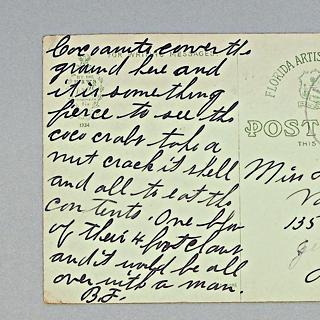 Cocoanuts cover the
ground here and
it is something
fierce to see the
coco crabs take a
nut crack it shell
and all to eat the
contents. One blow
of their 4 foot claws
and it would be all
over with a man.
B.F.
FOR WRITING MESSAGES
1934
FLORIDA ARTIS
POST
THIS
Miss
135